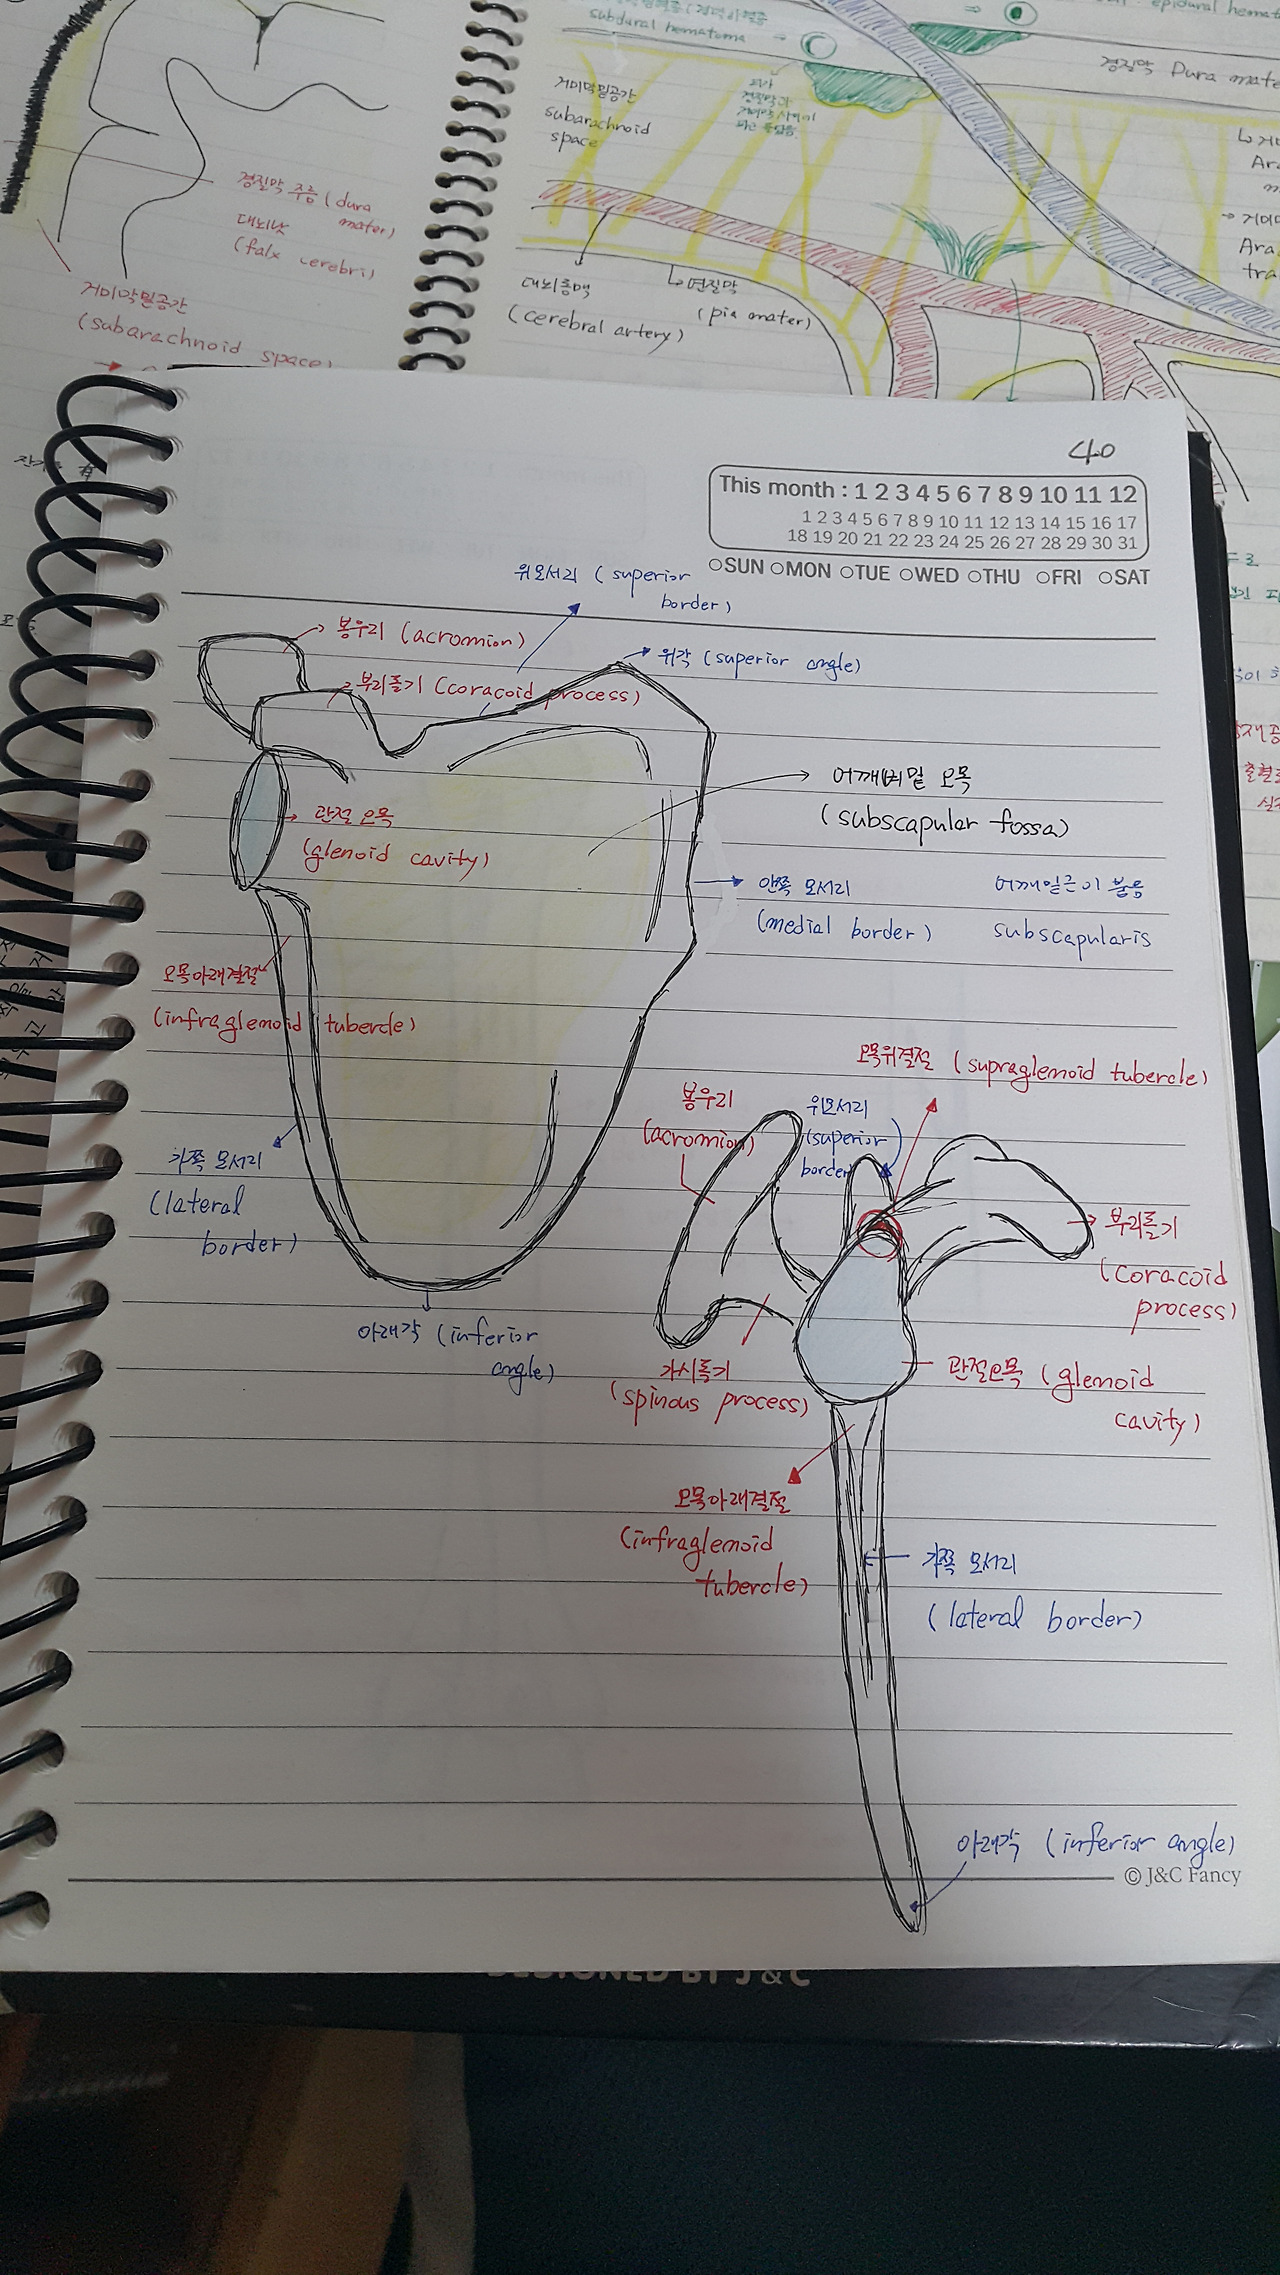 subdural hematoma
거미막밑공간
subarachnoid
space
경질막 Dura mate
경질막 주름 (dura
mater)
대뇌낫
(falx cerebri)
거미막밑공간
(subarachnoid space)
대뇌동맥
(cerebral artery)
연질막
(pia mater)
40
This month : 1 2 3 4 5 6 7 8 9 10 11 12
1 2 3 4 5 6 7 8 9 10 11 12 13 14 15 16 17
18 19 20 21 22 23 24 25 26 27 28 29 30 31
SUN MON TUE WED THU FRI SAT
위모서리 (superior
border)
봉우리 (acromion)
위각 (superior angle)
부리돌기 (coracoid process)
어깨뼈밑 오목
(subscapular fossa)
관절오목
(glenoid cavity)
안쪽 모서리
(medial border)
어깨밑근이 붙음
subscapularis
오목아래결절
(infraglemoid tubercle)
오목위결절 (supraglemoid tubercle)
봉우리
(acromion)
위모서리
(superior
border)
가쪽 모서리
(lateral
border)
부리돌기
(coracoid
process)
아래각 (inferior
angle)
가시돌기
(spinous process)
관절오목 (glenoid
cavity)
오목아래결절
(infraglemoid
tubercle)
가쪽 모서리
(lateral border)
아래각 (inferior angle)
© J&C Fancy
DESIGNED BY J&C